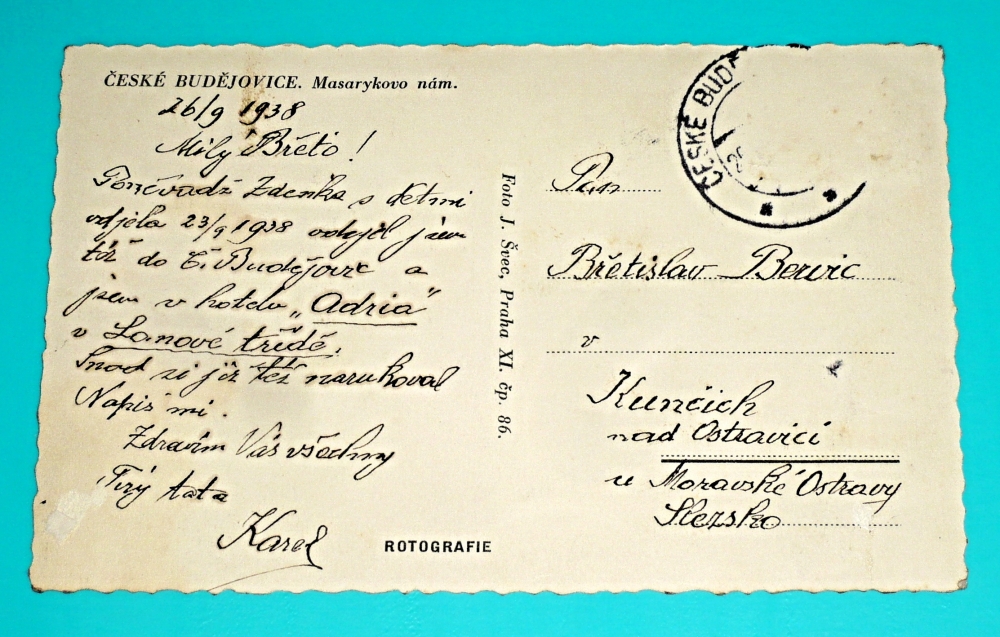 ČESKÉ BUDĚJOVICE. Masarykovo nám.
26/9 1938
Milý Břéťo!
Poněvadž Zdenka s dětmi
odjela 23/9 1938 odejel jsem
též do Č. Budějovic a
jsem v hotelu „Adria"
v Lanové třídě.
Snad si již též narukoval
Napiš mi.
Zdravím Vás všechny
Tvůj tata
Karel
ROTOGRAFIE
Foto J. Švec, Praha XI. čp. 86.
ČESKÉ BUD
Pan
Břetislav Bervic
v
Kunčich
nad Ostravicí
u Moravské Ostravy
Slezsko